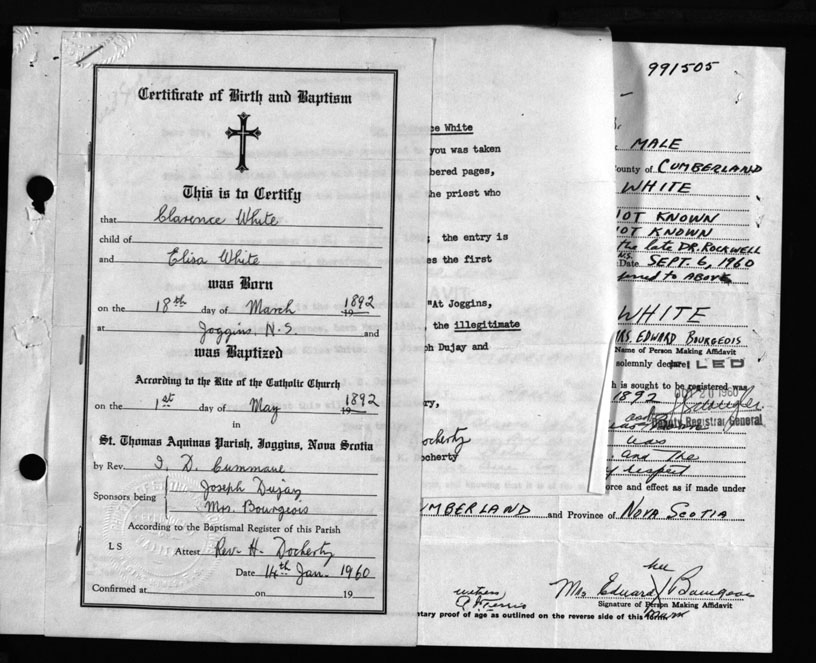 Certificate of Birth and Baptism
This is to Certify
that Clarence White
child of
and Elisa White
was Born
on the 18th day of March 1892 19
at Joggins, N.S and
was Baptized
According to the Rite of the Catholic Church
on the 1st day of May 1892 19
in
St. Thomas Aquinas Parish, Joggins, Nova Scotia
by Rev. I. D. Cummane
Sponsors being Joseph Dujay
Mrs. Bourgeois
According to the Baptismal Register of this Parish
L S Attest Rev. H. Docherty
Date 14th Jan. 1960
Confirmed at on 19
ce White
you was taken
bered pages,
he priest who
; the entry is
es the first
"At Joggins,
, the illegitimate
ph Dujay and
ry,
ocherty
ocherty
991505
MALE
ounty of CUMBERLAND
WHITE
NOT KNOWN
NOT KNOWN
the late DR. ROCKWELL
N.S. Date SEPT. 6, 1960
erred to ABOVE
WHITE
MRS. EDWARD BOURGEOIS
Name of Person Making Affidavit
solemnly declare
FILED
h is sought to be registered was
OCT 20 1960
1892
Deputy Registrar General
was
and the
y respect
orce and effect as if made under
UMBERLAND and Province of NOVA SCOTIA
her
witness
Mrs Edward X Bourgeois
Signature of Person Making Affidavit
mark
tary proof of age as outlined on the reverse side of this form.